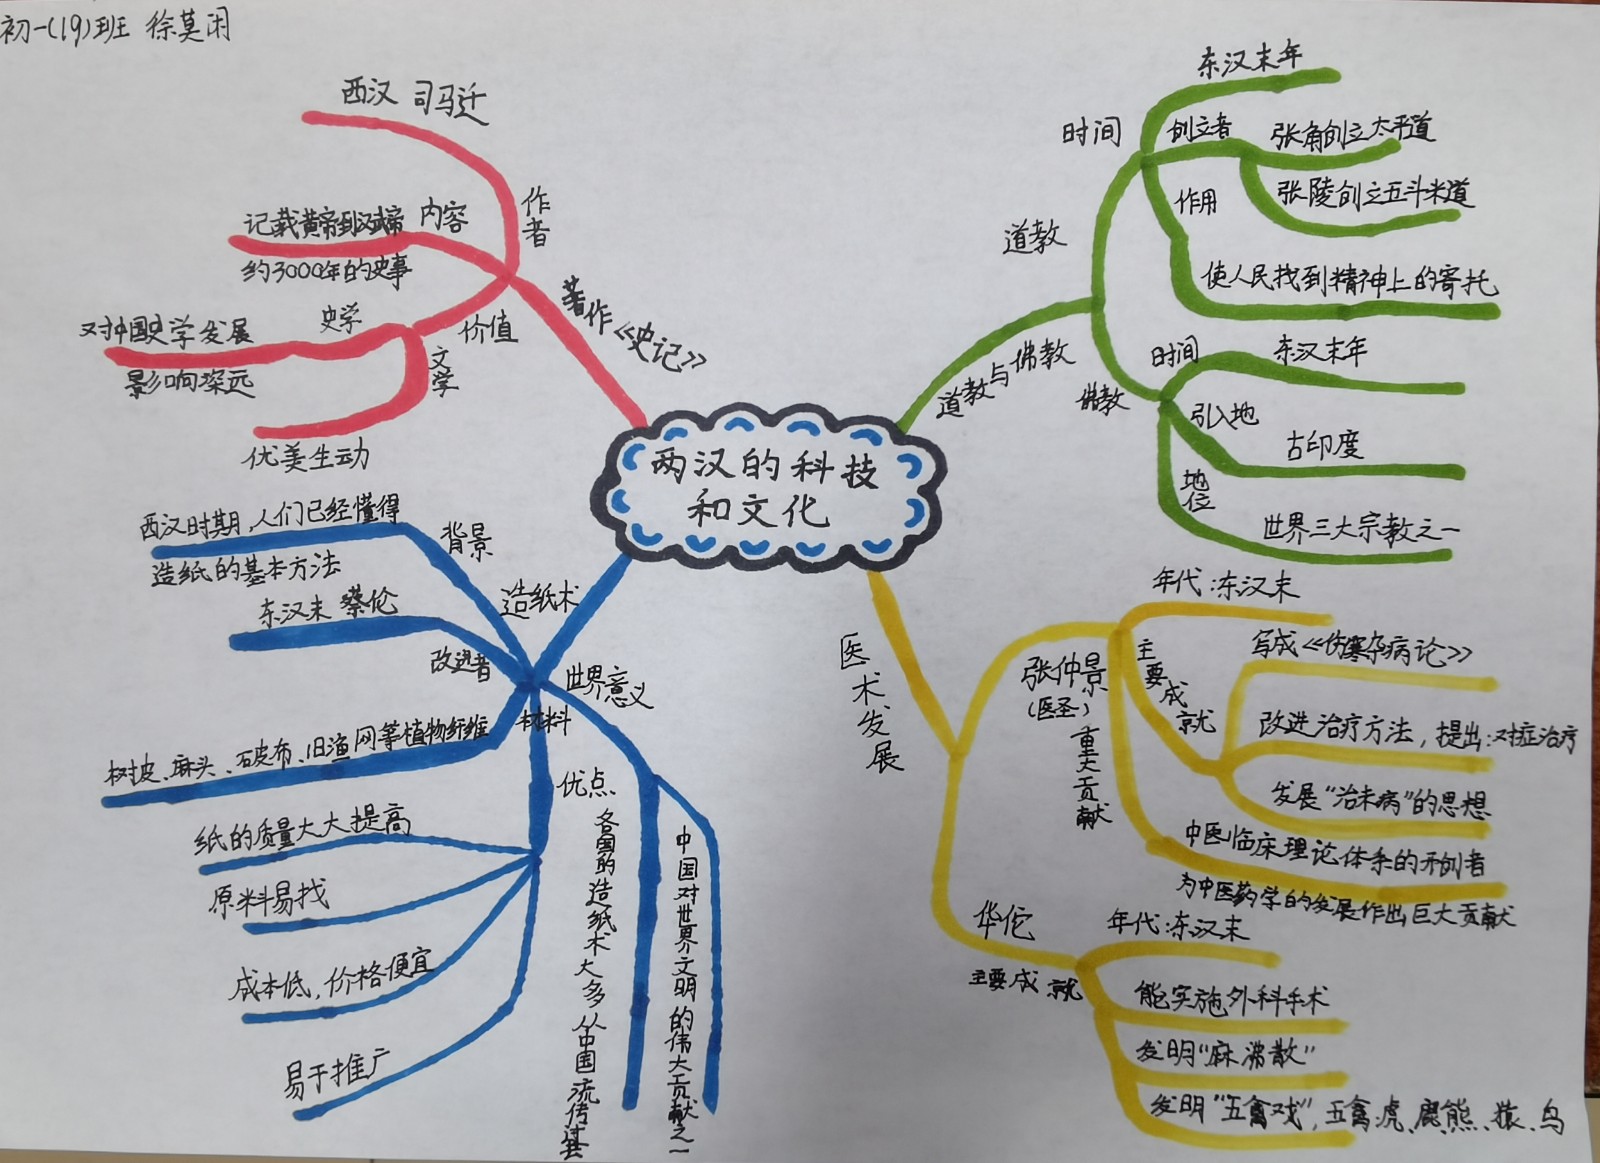 初一(19)班 徐莫闲
两汉的科技
和文化
著作《史记》
作者
西汉 司马迁
内容
记载黄帝到汉武帝
约3000年的史事
价值
史学
对中国史学发展
影响深远
文学
优美生动
道教与佛教
道教
时间
东汉末年
创立者
张角创立太平道
张陵创立五斗米道
作用
使人民找到精神上的寄托
佛教
时间
东汉末年
引入地
古印度
地位
世界三大宗教之一
造纸术
背景
西汉时期,人们已经懂得
造纸的基本方法
改进者
东汉末 蔡伦
材料
树皮、麻头、破布、旧渔网等植物纤维
优点
纸的质量大大提高
原料易找
成本低,价格便宜
易于推广
世界意义
各国的造纸术大多从中国流传过去
中国对世界文明的伟大贡献之一
医术发展
张仲景
(医圣)
年代:东汉末
主要成就
写成《伤寒杂病论》
改进治疗方法,提出:对症治疗
发展“治未病”的思想
重大贡献
中医临床理论体系的开创者
为中医药学的发展作出巨大贡献
华佗
年代:东汉末
主要成就
能实施外科手术
发明“麻沸散”
发明“五禽戏”,五禽:虎、鹿、熊、猿、鸟